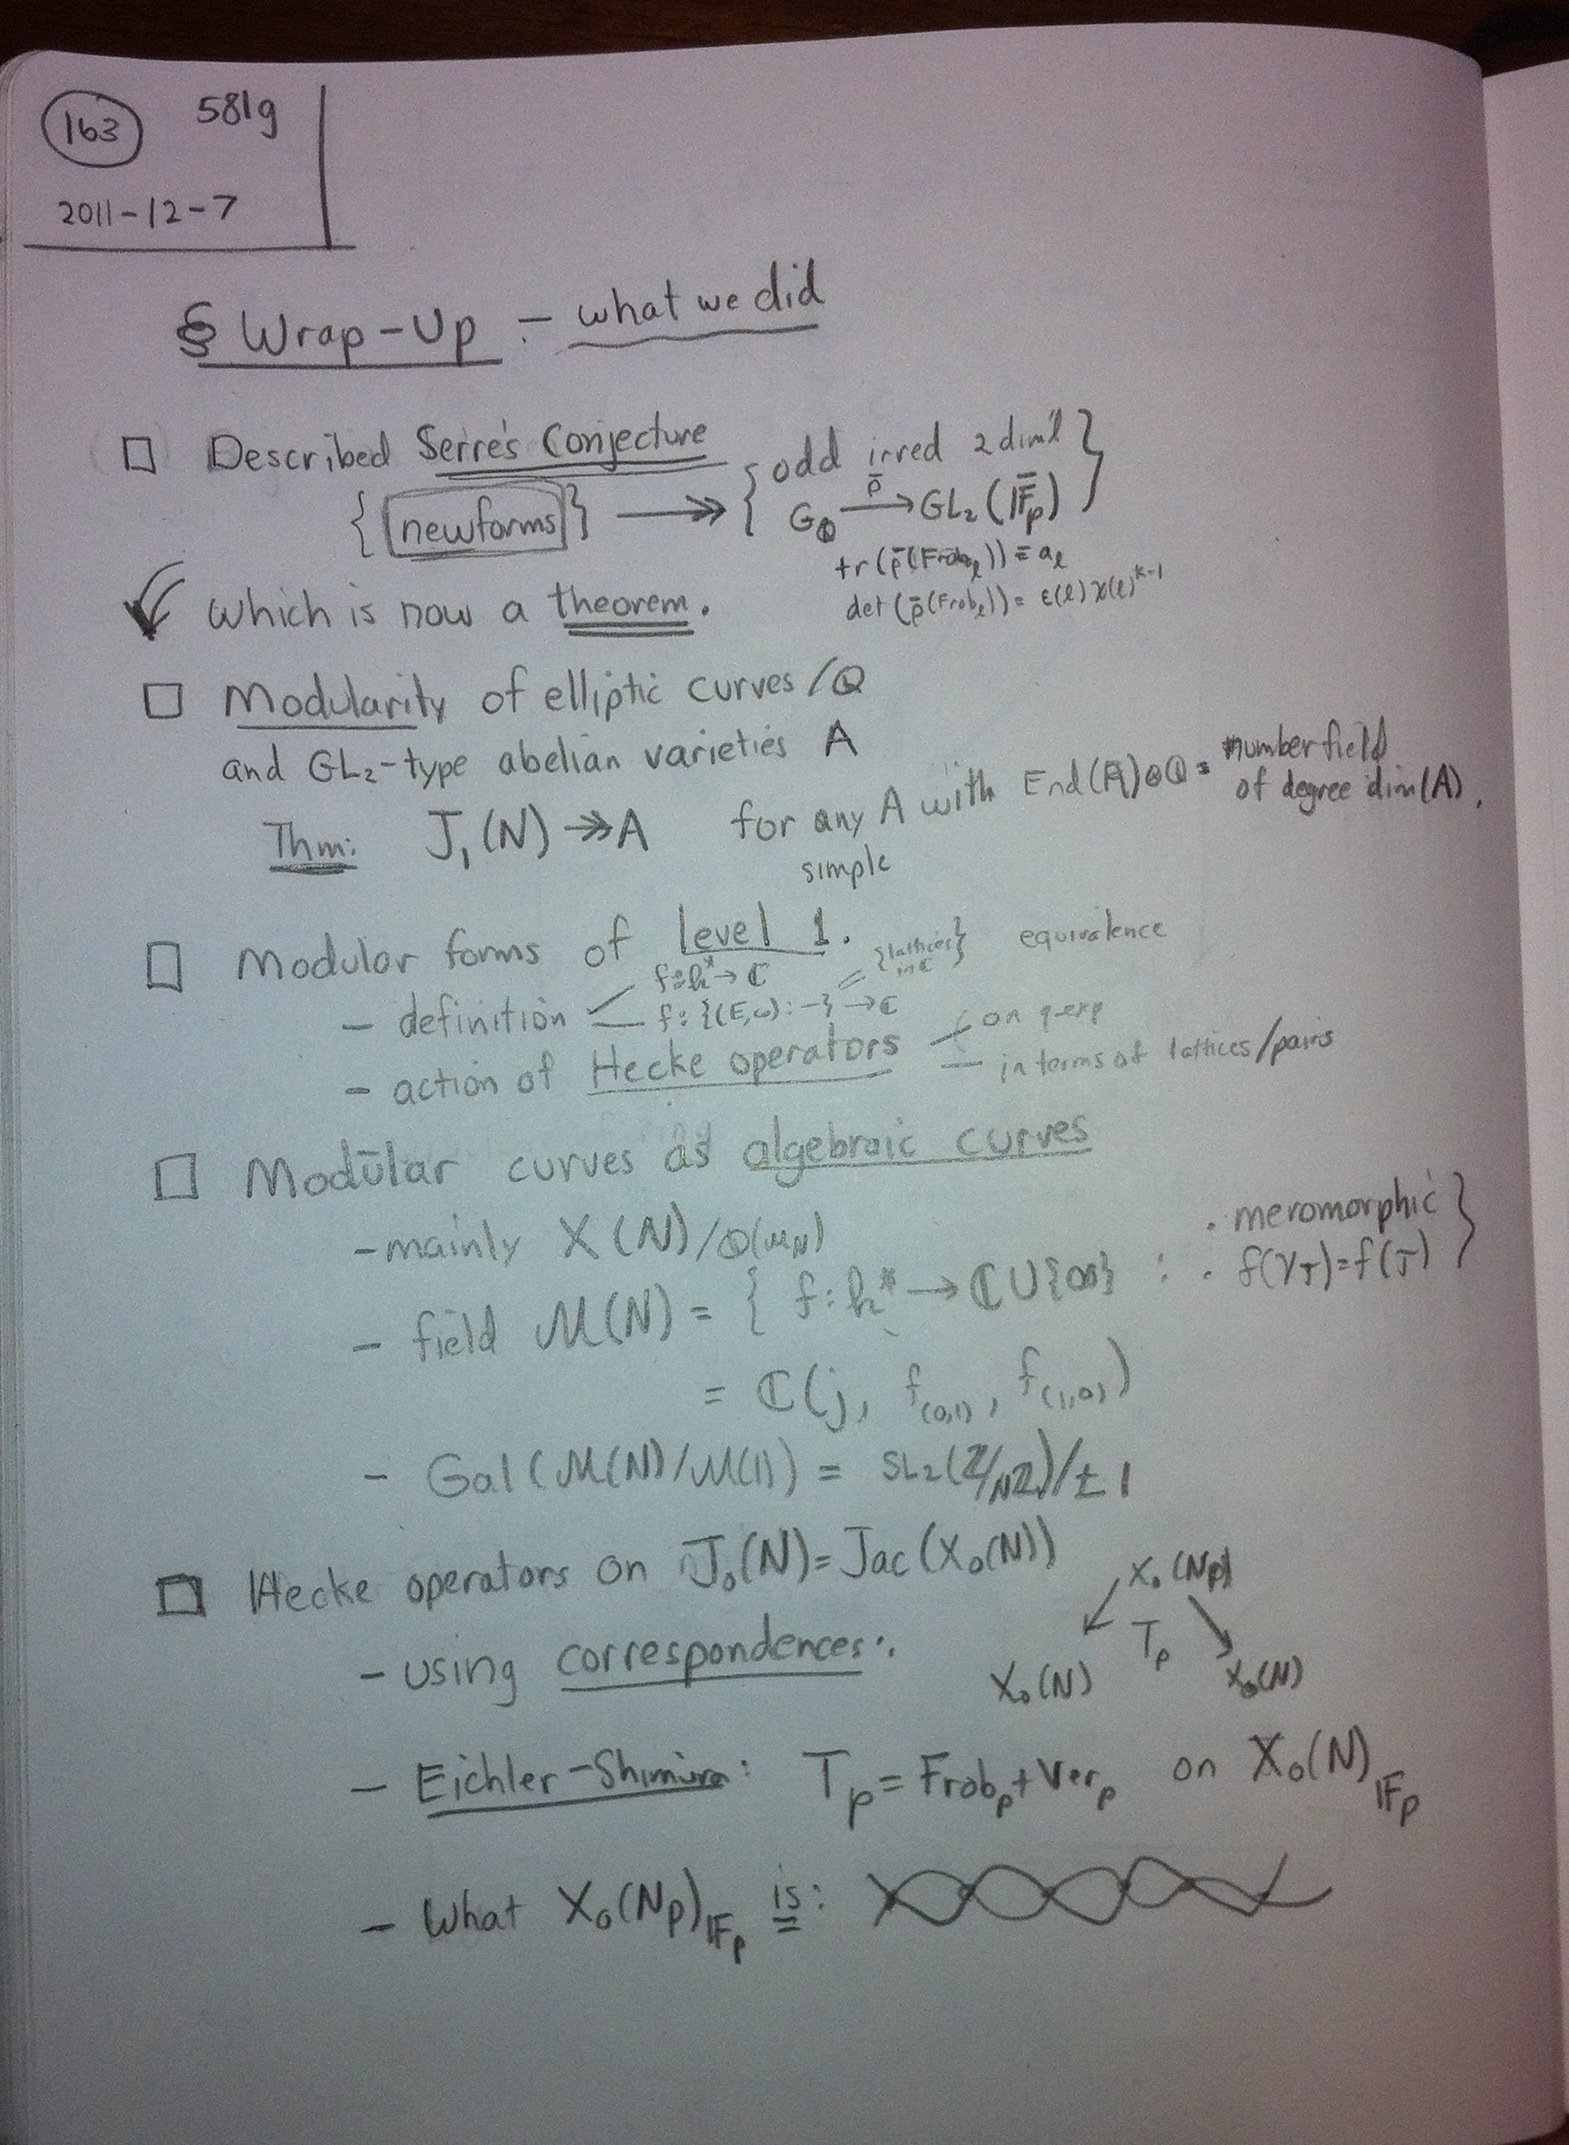 163 581g
2011-12-7
§ Wrap-Up - what we did
□ Described Serre's Conjecture
{newforms} ↠ { odd irred 2 dim'l G_Q --ρ̄--> GL₂(F̄_p) }
tr(ρ̄(Frob_ℓ)) ≡ a_ℓ
which is now a theorem.
det(ρ̄(Frob_ℓ)) = ε(ℓ) χ(ℓ)^{k-1}
□ Modularity of elliptic curves/Q
and GL₂-type abelian varieties A
Thm: J₁(N) ↠ A for any A with End(A)⊗Q = number field of degree dim(A).
simple
□ Modular forms of level 1.
{lattices in C} equivalence
f: h* → C
- definition f: {(E,ω): ~} → C
on q-exp
- action of Hecke operators - in terms of lattices/pairs
□ Modular curves as algebraic curves
- mainly X(N)/Q(μ_N)
- field M(N) = { f: h* → C ∪ {∞} : · meromorphic · f(γτ) = f(τ) }
= C(j, f_(0,1), f_(1,0))
- Gal(M(N)/M(1)) = SL₂(Z/NZ)/±1
□ Hecke operators on J₀(N) = Jac(X₀(N))
X₀(Np)
- using correspondences: T_p
X₀(N) X₀(N)
- Eichler-Shimura: T_p = Frob_p + Ver_p on X₀(N)_{F_p}
- What X₀(Np)_{F_p} is: